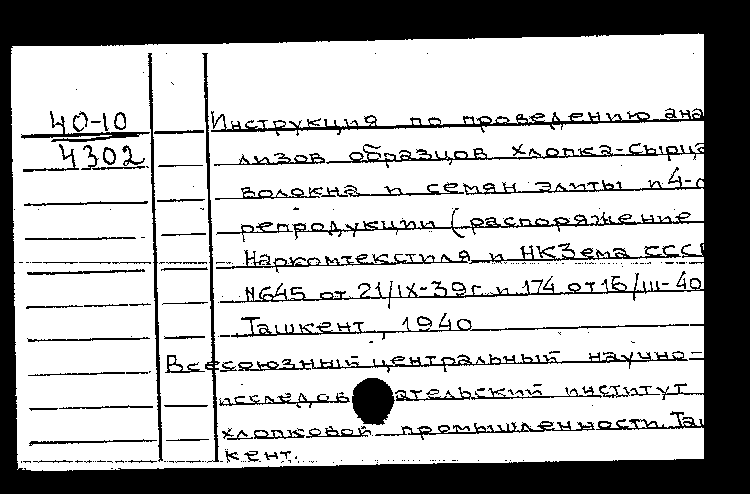 40-10
4302
Инструкция по проведению ана
лизов образцов хлопка-сырца
волокна и семян элиты и 4-о
репродукции (распоряжение
Наркомтекстиля и НКЗема СССР
N645 от 21/IX-39г и 174 от 16/III-40
Ташкент, 1940
Всесоюзный центральный научно-
исследовательский институт
хлопковой промышленности. Таш
кент.